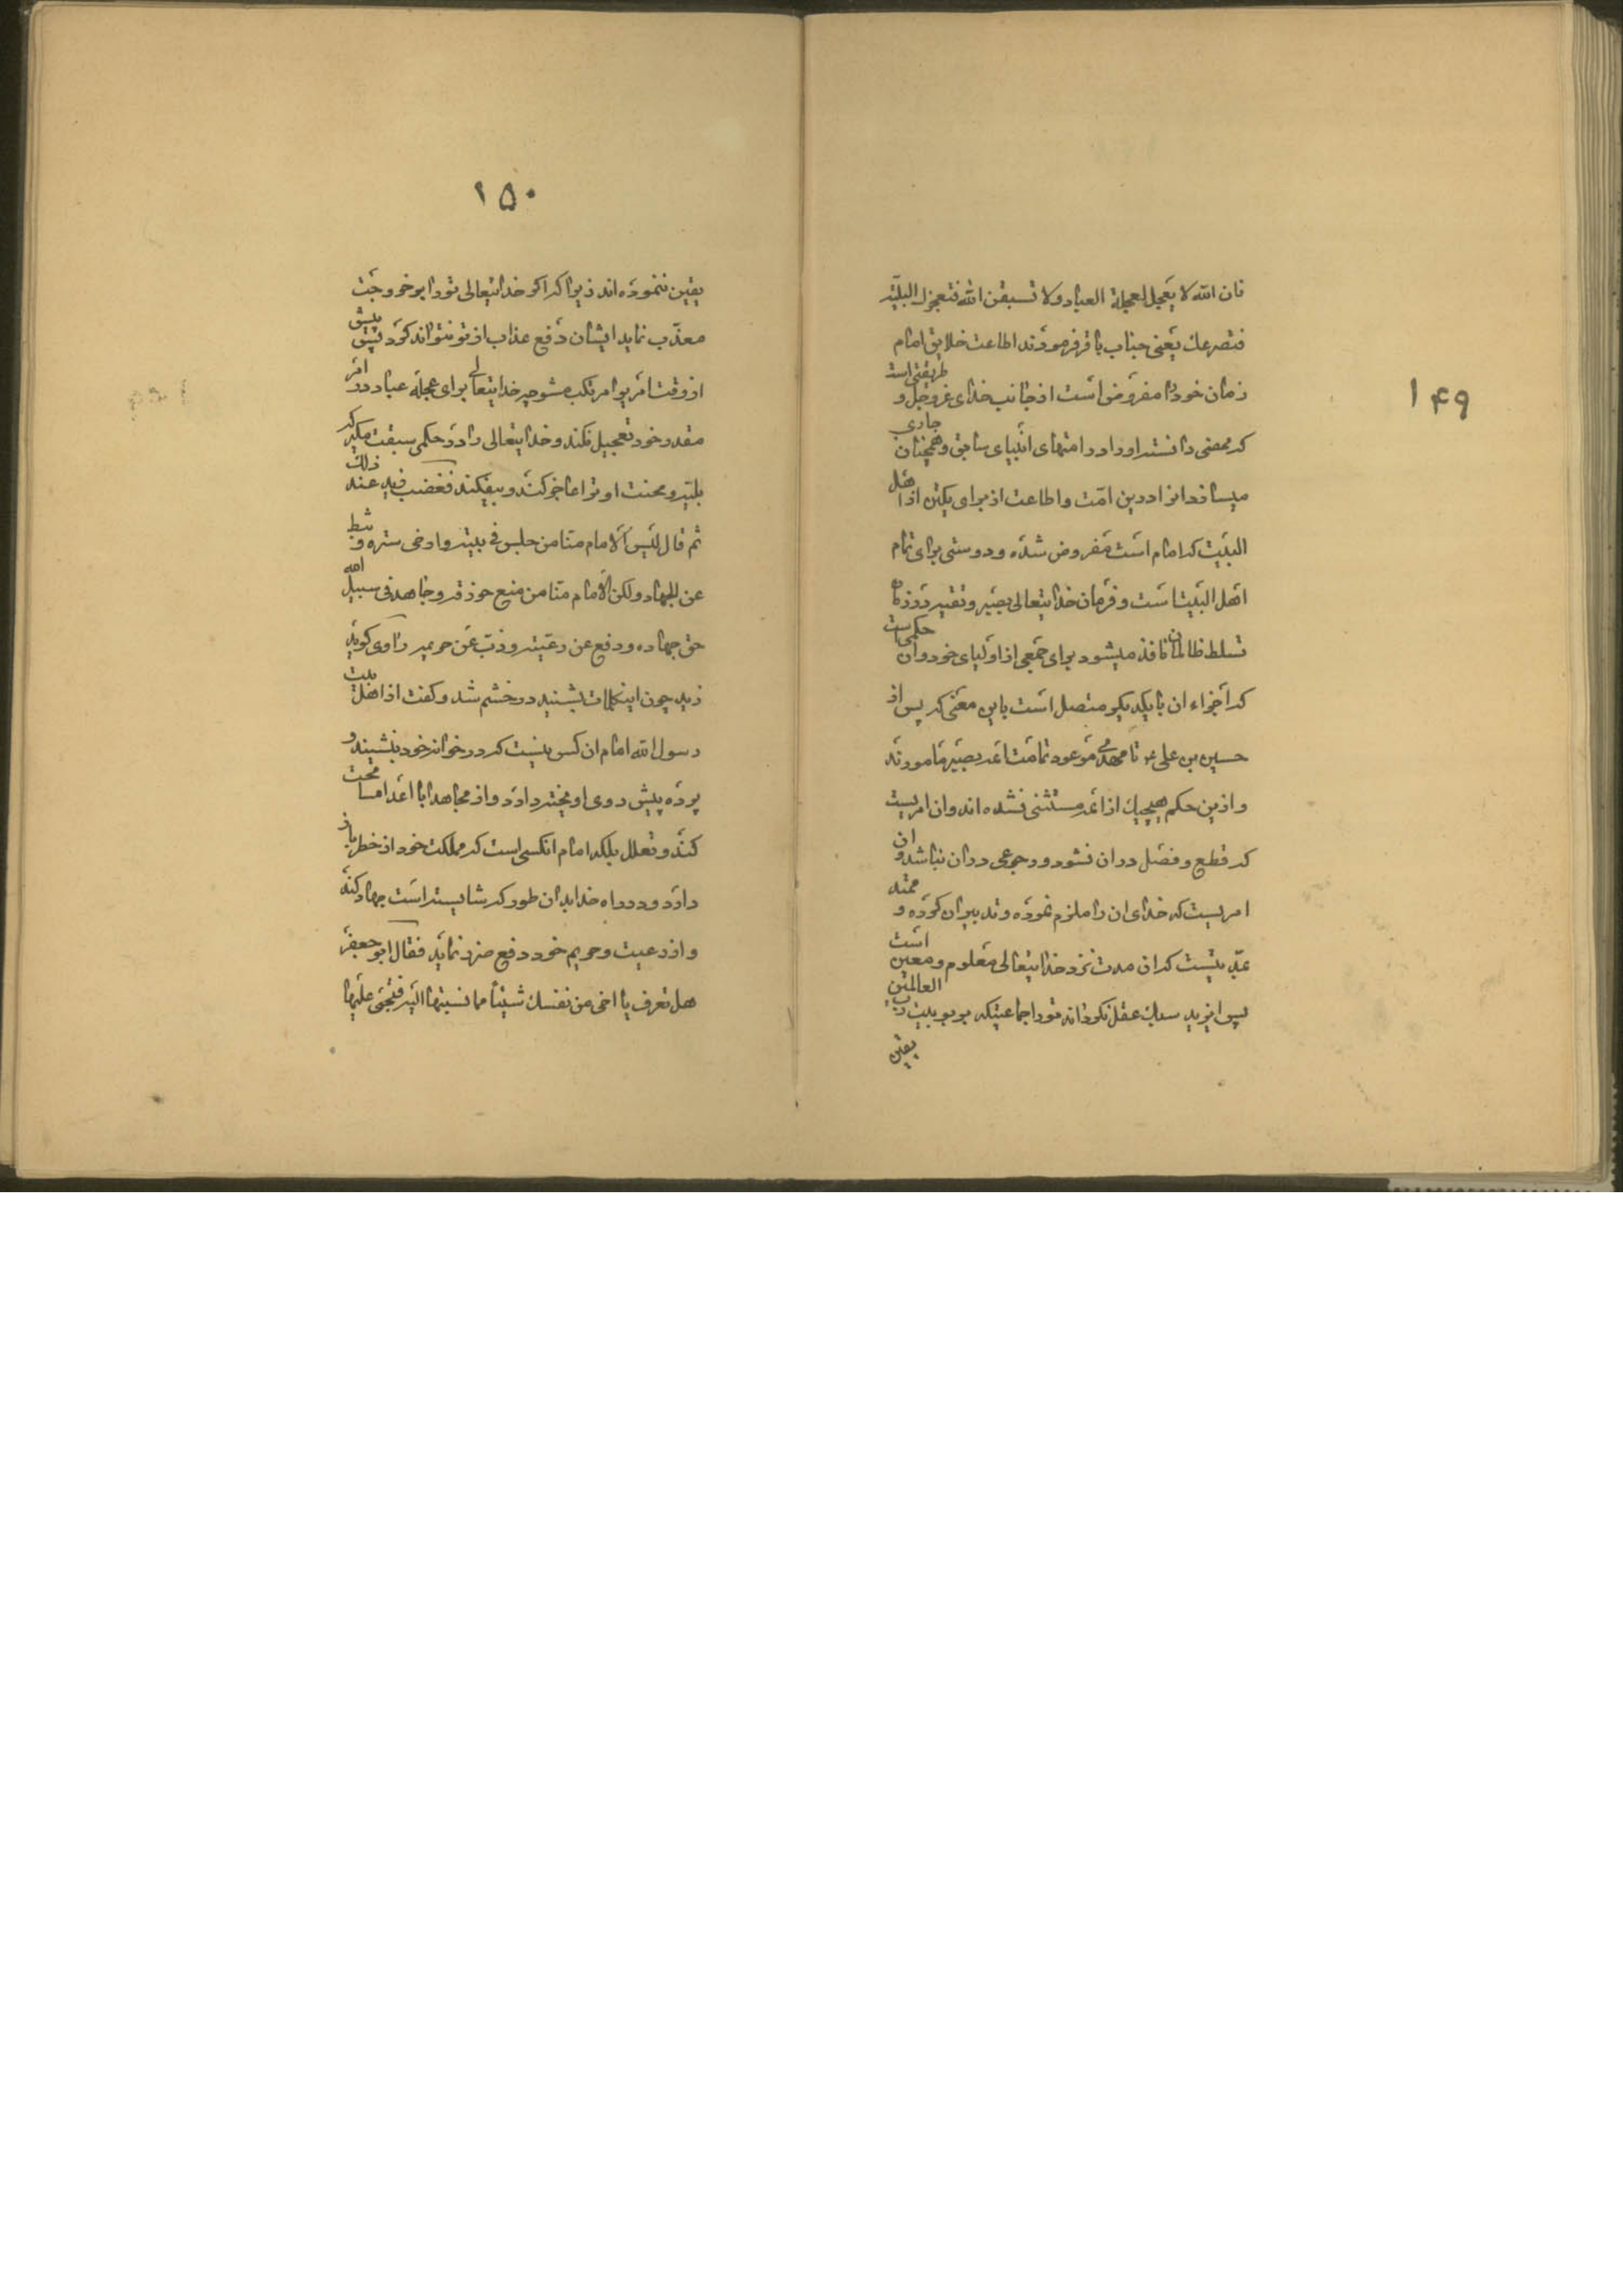 ۱۴۹
فان الله لا یعجل لعجلة العباد ولا تسبقن الله فتعجزك البلیة
فتصرعك یعنی جناب باقر فرمودند اطاعت خلایق امام
زمان خود را مفروض است از جانب خدای عزوجل و طریقتی است
که ممضی دانسته او را در امتهای انبیای سابق و همچنان جاری
میسازد انرا در این امت و اطاعت از برای یکتن از اهل
البیت که امام است مفروض شده و دوستی برای تمام
اهل البیت است و فرمان خدایتعالی بصبر و تقیه در زمان
تسلط ظالمان نافذ میشود برای جمعی از اولیای خود و آن حکمی است
که اجزاء ان با یکدیگر متصل است باین معنی که پس از
حسین بن علی ع تا مهدی موعود تمامت ائمه بصبر مامورند
و ازین حکم هیچیک از ائمه مستثنی نشده اند و ان امریست
که قطع و فصل در ان نشود و رجوعی در ان نباشد و ان
امریست که خدای ان را ملزم نموده و تدبیر ان کرده و ممتد
بمدتیست که ان مدت نزد خدایتعالی معلوم و معین است
پس ایزید سبك عقل نگردانند تو را جماعتیکه بربوبیت رب العالمین
یقین
۱۵۰
یقین ننموده اند زیرا که اگر خدایتعالی تو را بر خروجت
معذب نماید ایشان دفع عذاب از تو نتوانند کرد پیش
از وقت امر بر امر مرتکب مشو چه خدایتعالی برای عجله عباد در امر
مقدر خود تعجیل نکند و خدایتعالی را در حکمی سبقت مگیر که
بلیه و محنت او ترا عاجز کند و بیفکند فغضب زید عند ذلك
ثم قال لیس الامام منا من جلس فی بیته و ارخی ستره و ثبط
عن الجهاد ولکن الامام منا من منع حوزته و جاهد فی سبیل الله
حق جهاده و دفع عن رعیته و ذب عن حریمه راوی گوید
زید چون اینکلمات بشنید در خشم شد و گفت از اهل بیت
رسول الله امام ان کس نیست که در خوانه خود بنشیند و
پرده پیش روی اویخته دارد و از مجاهد با اعدا مسامحت
کند و تعلل بلکه امام انکسی است که مملکت خود از خطر باز
دارد و در راه خدا بدان طور که شایسته است جهاد کند
و از رعیت و حریم خود دفع ضرر نماید فقال ابو جعفر
هل تعرف یا اخی من نفسك شیئا مما نسبتها الیه فتجئ علیها